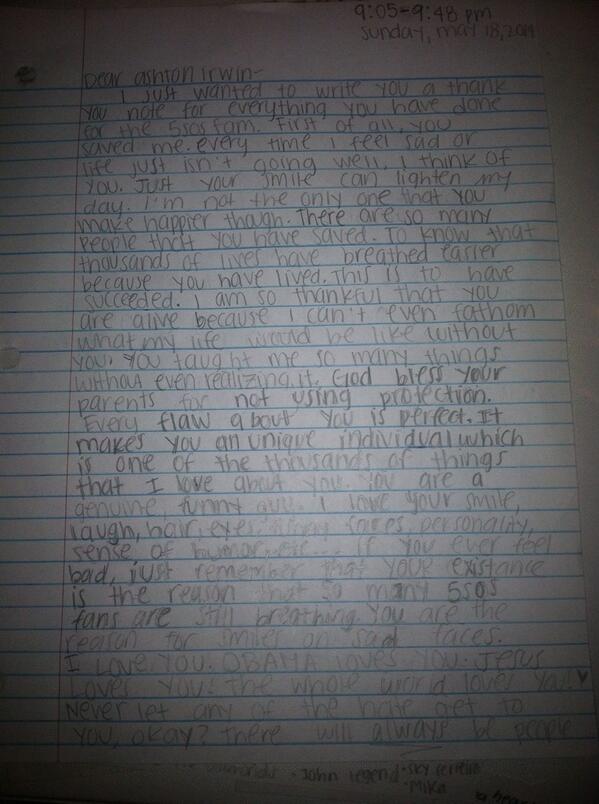 9:05-9:48 pm
Sunday, may 18, 2014
Dear ashton irwin-
I just wanted to write you a thank
you note for everything you have done
for the 5sosfam. First of all, you
saved me. every time I feel sad or
life just isn't going well, I think of
you. Just your smile can lighten my
day. I'm not the only one that you
make happier though. There are so many
people that you have saved. To know that
thousands of lives have breathed easier
because you have lived. This is to have
succeeded. I am so thankful that you
are alive because I can't even fathom
what my life would be like without
you. You taught me so many things
without even realizing it. God bless your
parents for not using protection.
Every flaw about you is perfect. It
makes you an unique individual which
is one of the thousands of things
that I love about you. You are a
genuine, funny guy. I love your smile,
laugh, hair, eyes, faces, personality,
sense of humor, etc... If you ever feel
bad, just remember that your existance
is the reason that so many 5sos
fans are still breathing. You are the
reason for smiles on sad faces.
I LOVE YOU. OBAMA loves YOU. JESUS
Loves You! the whole world loves you! ♥
Never let any of the hate get to
you, okay? There will always be people
John legend • sky ferreira
• MIKA